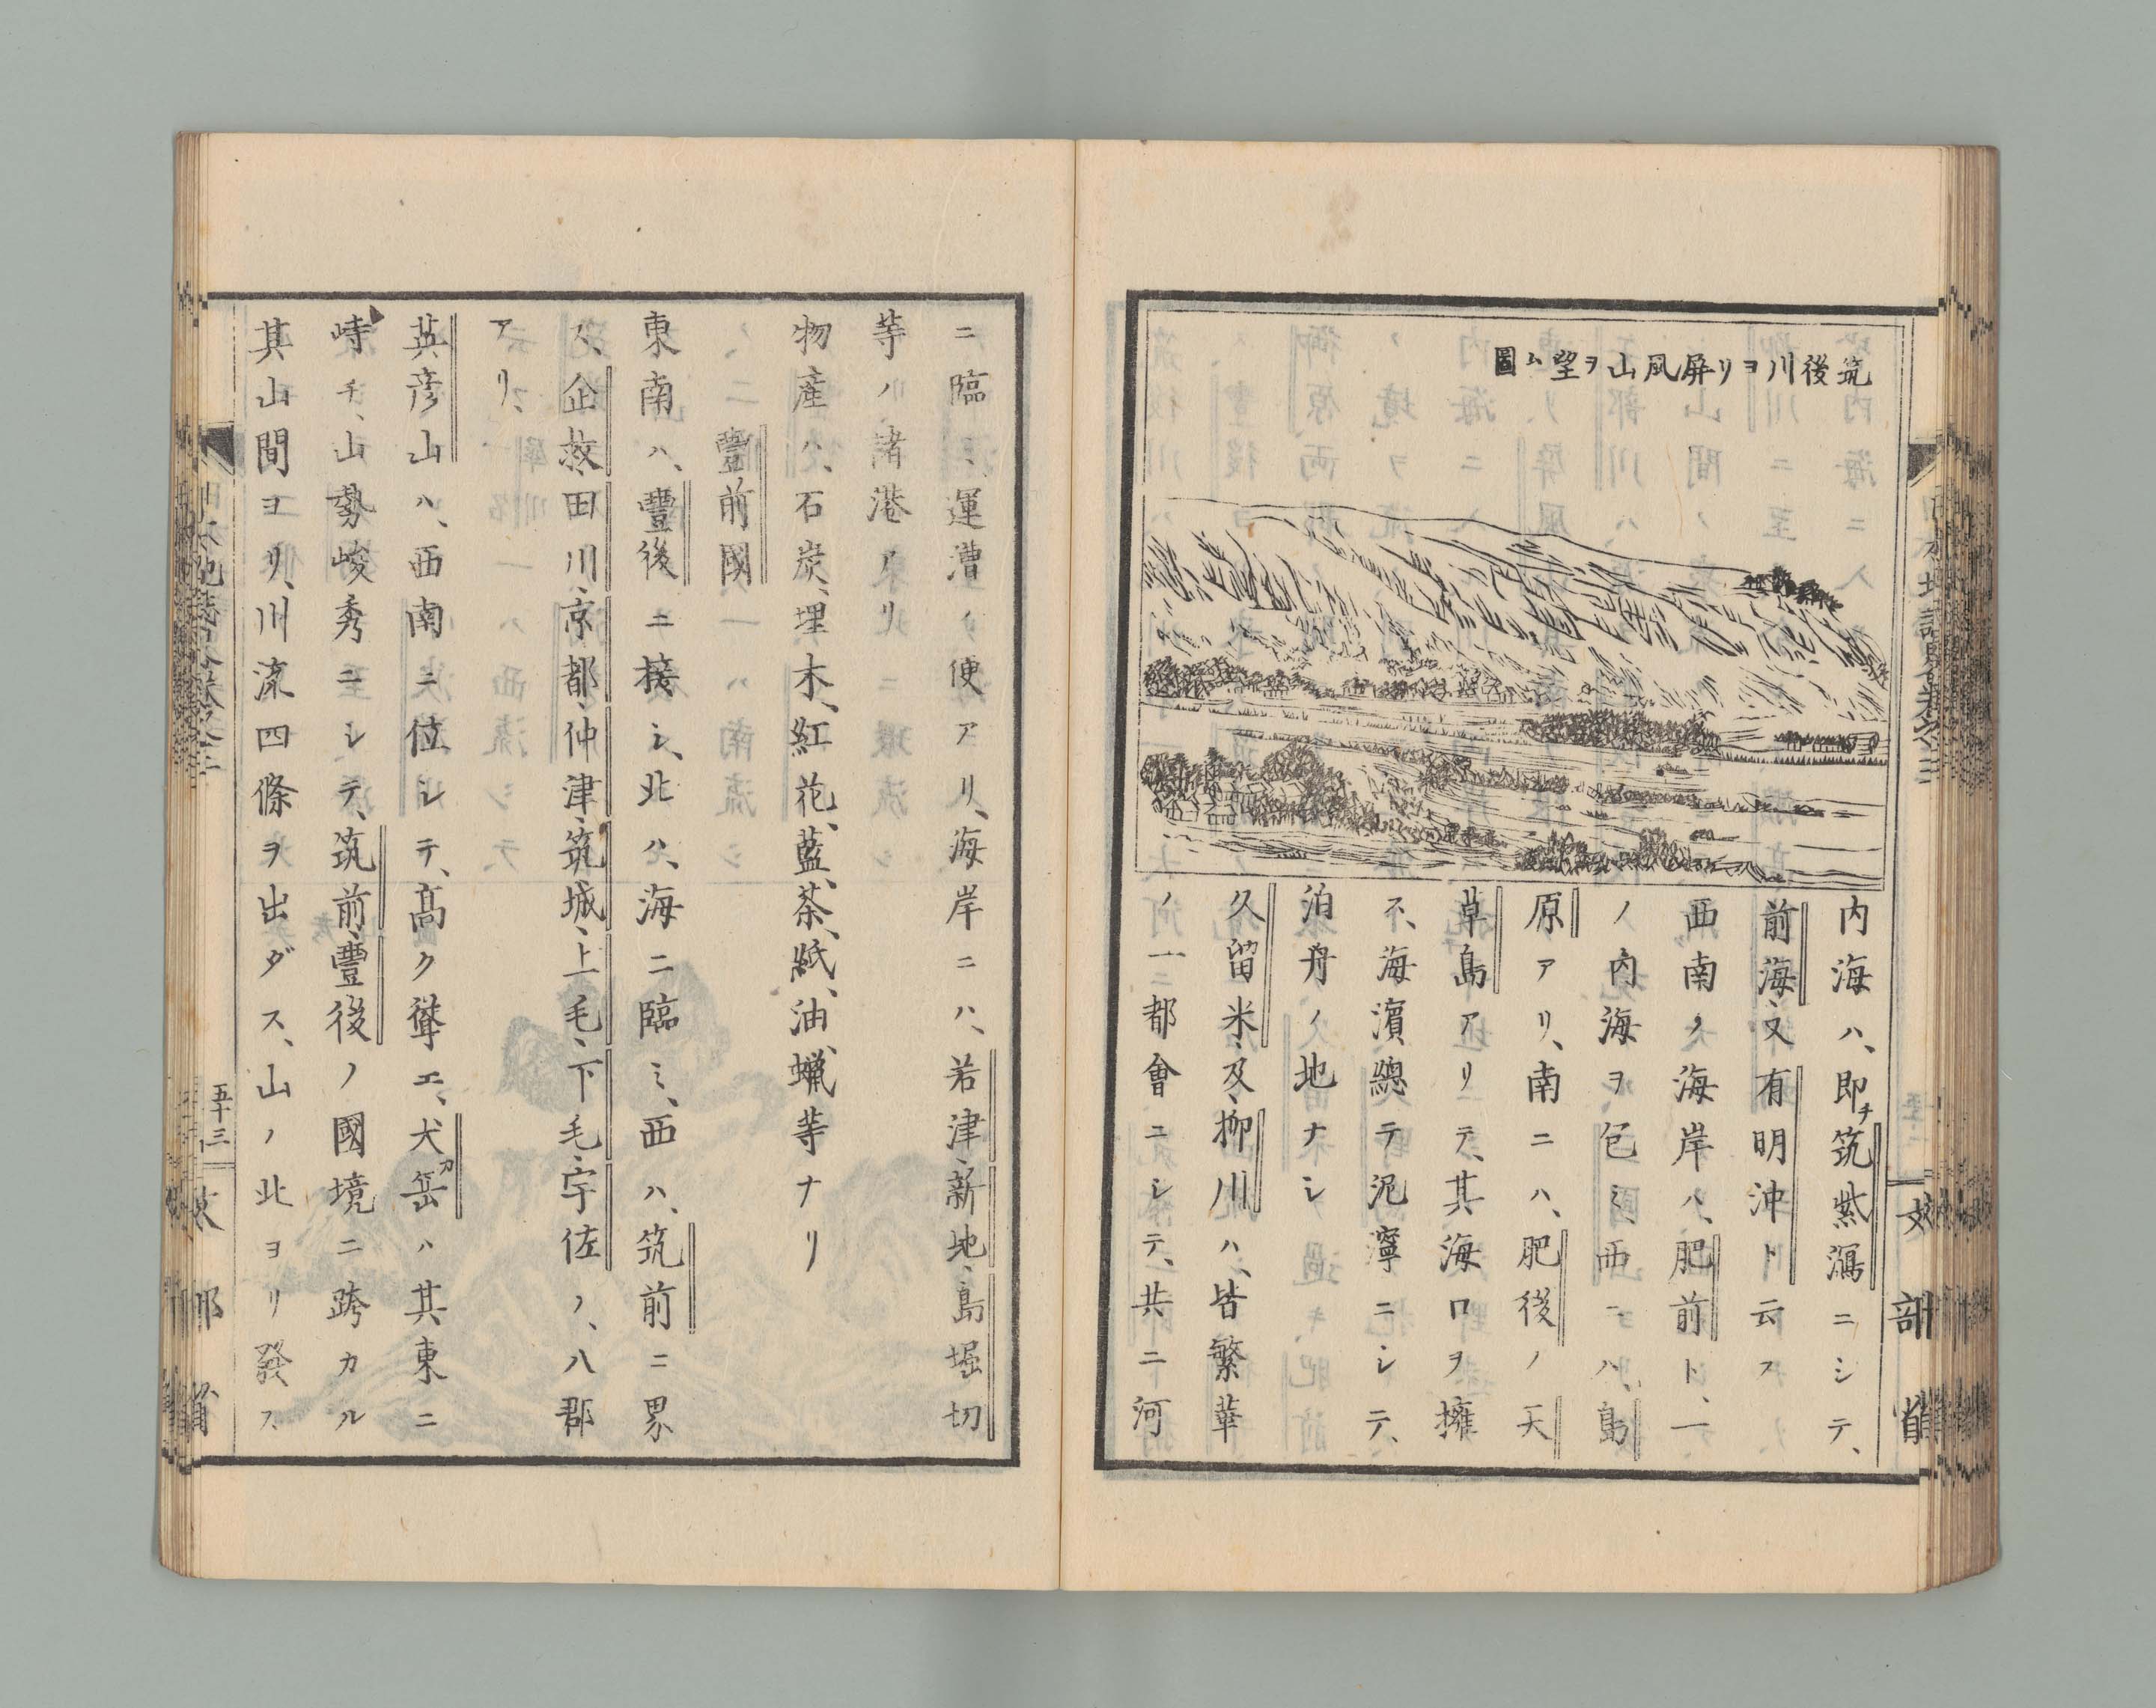 筑後川ヨリ屏風山ヲ望ム圖
内海ハ、即チ筑紫瀉ニシテ、
前海、又有明沖ト云ス
西南ノ海岸ハ、肥前ト、一
ノ内海ヲ包ミ、西ニハ、島
原アリ、南ニハ、肥後ノ天
草島アリテ、其海口ヲ擁
ス、海濱總テ泥濘ニシテ、
泊舟ノ地ナシ
久留米、及、柳川ハ、皆繁華
ノ一都會ニシテ、共ニ河
ニ臨ミ、運漕ノ便アリ、海岸ニハ、若津、新地、島堀切
等ノ諸港アリ
物産ハ、石炭、埋木、紅花、藍、茶、紙、油、蠟等ナリ
豐前國
東南ハ、豐後ニ接シ、北ハ、海ニ臨ミ、西ハ、筑前ニ界
ス、企救、田川、京都、仲津、筑城、上毛、下毛、宇佐ノ、八郡
アリ、
英彦山ハ、西南ニ位シテ、高ク聳エ、犬岳ハ其東ニ
峙チ、山勢峻秀ニシテ、筑前、豐後ノ國境ニ跨カル
其山間ヨリ、川流四條ヲ出ダス、山ノ北ヨリ發ス
五十三